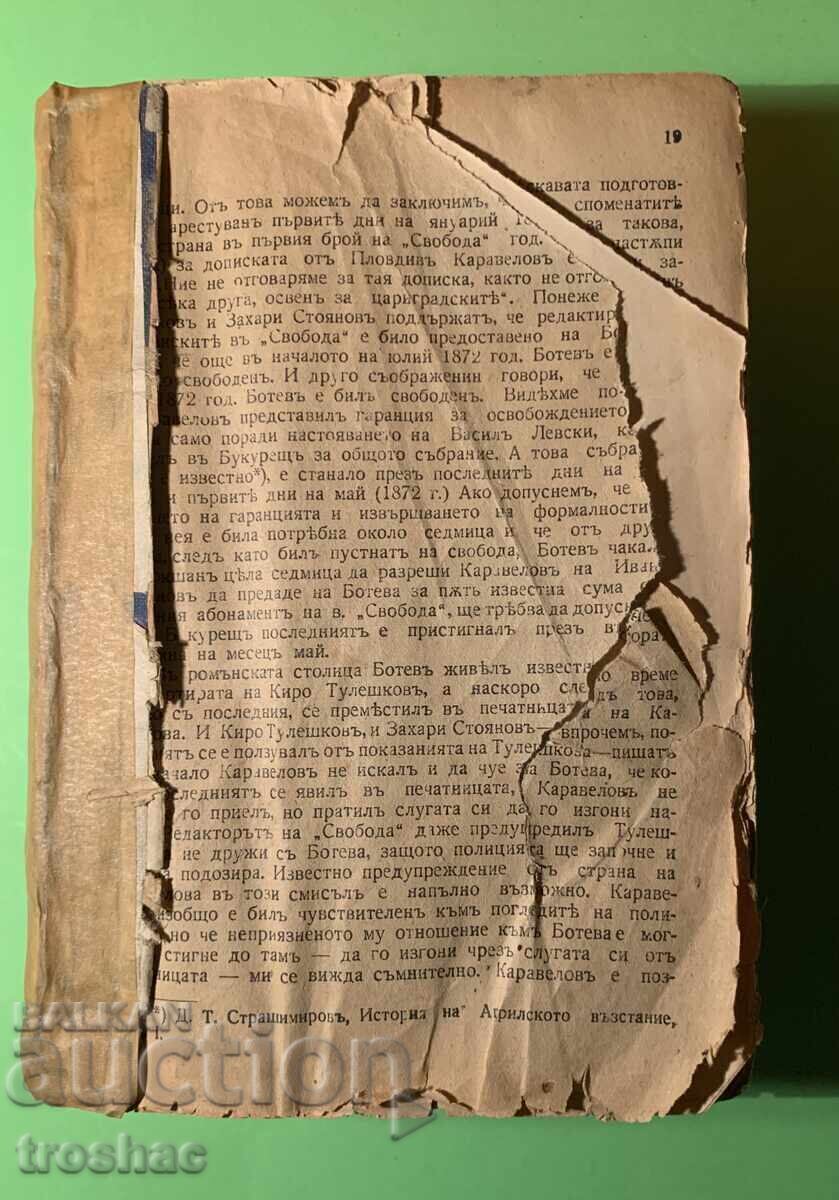 19
скавата подготов-
ци. Отъ това можемъ да заключимъ, споменатитѣ
арестуванъ първитѣ дни на януарий за такова,
страна въ първия брой на „Свобода“ год. настѫпи
за дописката отъ Пловдивъ Каравеловъ е за-
Ние не отговаряме за тая дописка, както не отго
ка друга, освенъ за цариградскитѣ“. Понеже
овъ и Захари Стояновъ поддържатъ, че редактир
скитѣ въ „Свобода“ е било предоставено на Бо
е още въ началото на юлий 1872 год. Ботевъ е
свободенъ. И друго съображении говори, че
872 год. Ботевъ е билъ свободенъ. Видѣхме по-
авеловъ представилъ гаранция за освобождението
само поради настояването на Василъ Левски, ка
лъ въ Букурещъ за общото събрание. А това събра
е известно*), е станало презъ последнитѣ дни на
и първитѣ дни на май (1872 г.) Ако допуснемъ, че
ето на гаранцията и извършването на формалности
нея е била потрѣбна около седмица и че отъ дру
следъ като билъ пустнатъ на свобода, Ботевъ чака
кшанъ цѣла седмица да разреши Каравеловъ на Иван
новъ да предаде на Ботева за пѫть известна сума
ния абонаментъ на в. „Свобода“, ще трѣбва да допусн
Букурещъ последниятъ е пристигналъ презъ втора
на месецъ май.
ромънската столица Ботевъ живѣлъ известно време
ртирата на Киро Тулешковъ, а наскоро следъ това,
съ последния, се премѣстилъ въ печатницата на Ка-
ова. И Киро Тулешковъ, и Захари Стояновъ—впрочемъ, по-
ятъ се е ползувалъ отъ показанията на Тулешкова—пишатъ
ачало Каравеловъ не искалъ и да чуе за Ботева, че ко-
следниятъ се явилъ въ печатницата, Каравеловъ не
го приелъ, но пратилъ слугата си да го изгони на-
едакторътъ на „Свобода“ даже предупредилъ Тулеш-
не дружи съ Ботева, защото полицията ще започне и
подозира. Известно предупреждение отъ страна на
ова въ този смисълъ е напълно възможно. Караве-
изобщо е билъ чувствителенъ къмъ погледитѣ на поли-
но че неприязненото му отношение къмъ Ботева е мог-
стигне до тамъ — да го изгони чрезъ слугата си отъ
ницата — ми се вижда съмнително. Каравеловъ е поз-
*) Д. Т. Страшимировъ, История на Априлското възстание,
I.
BALKAN
auction
troshac